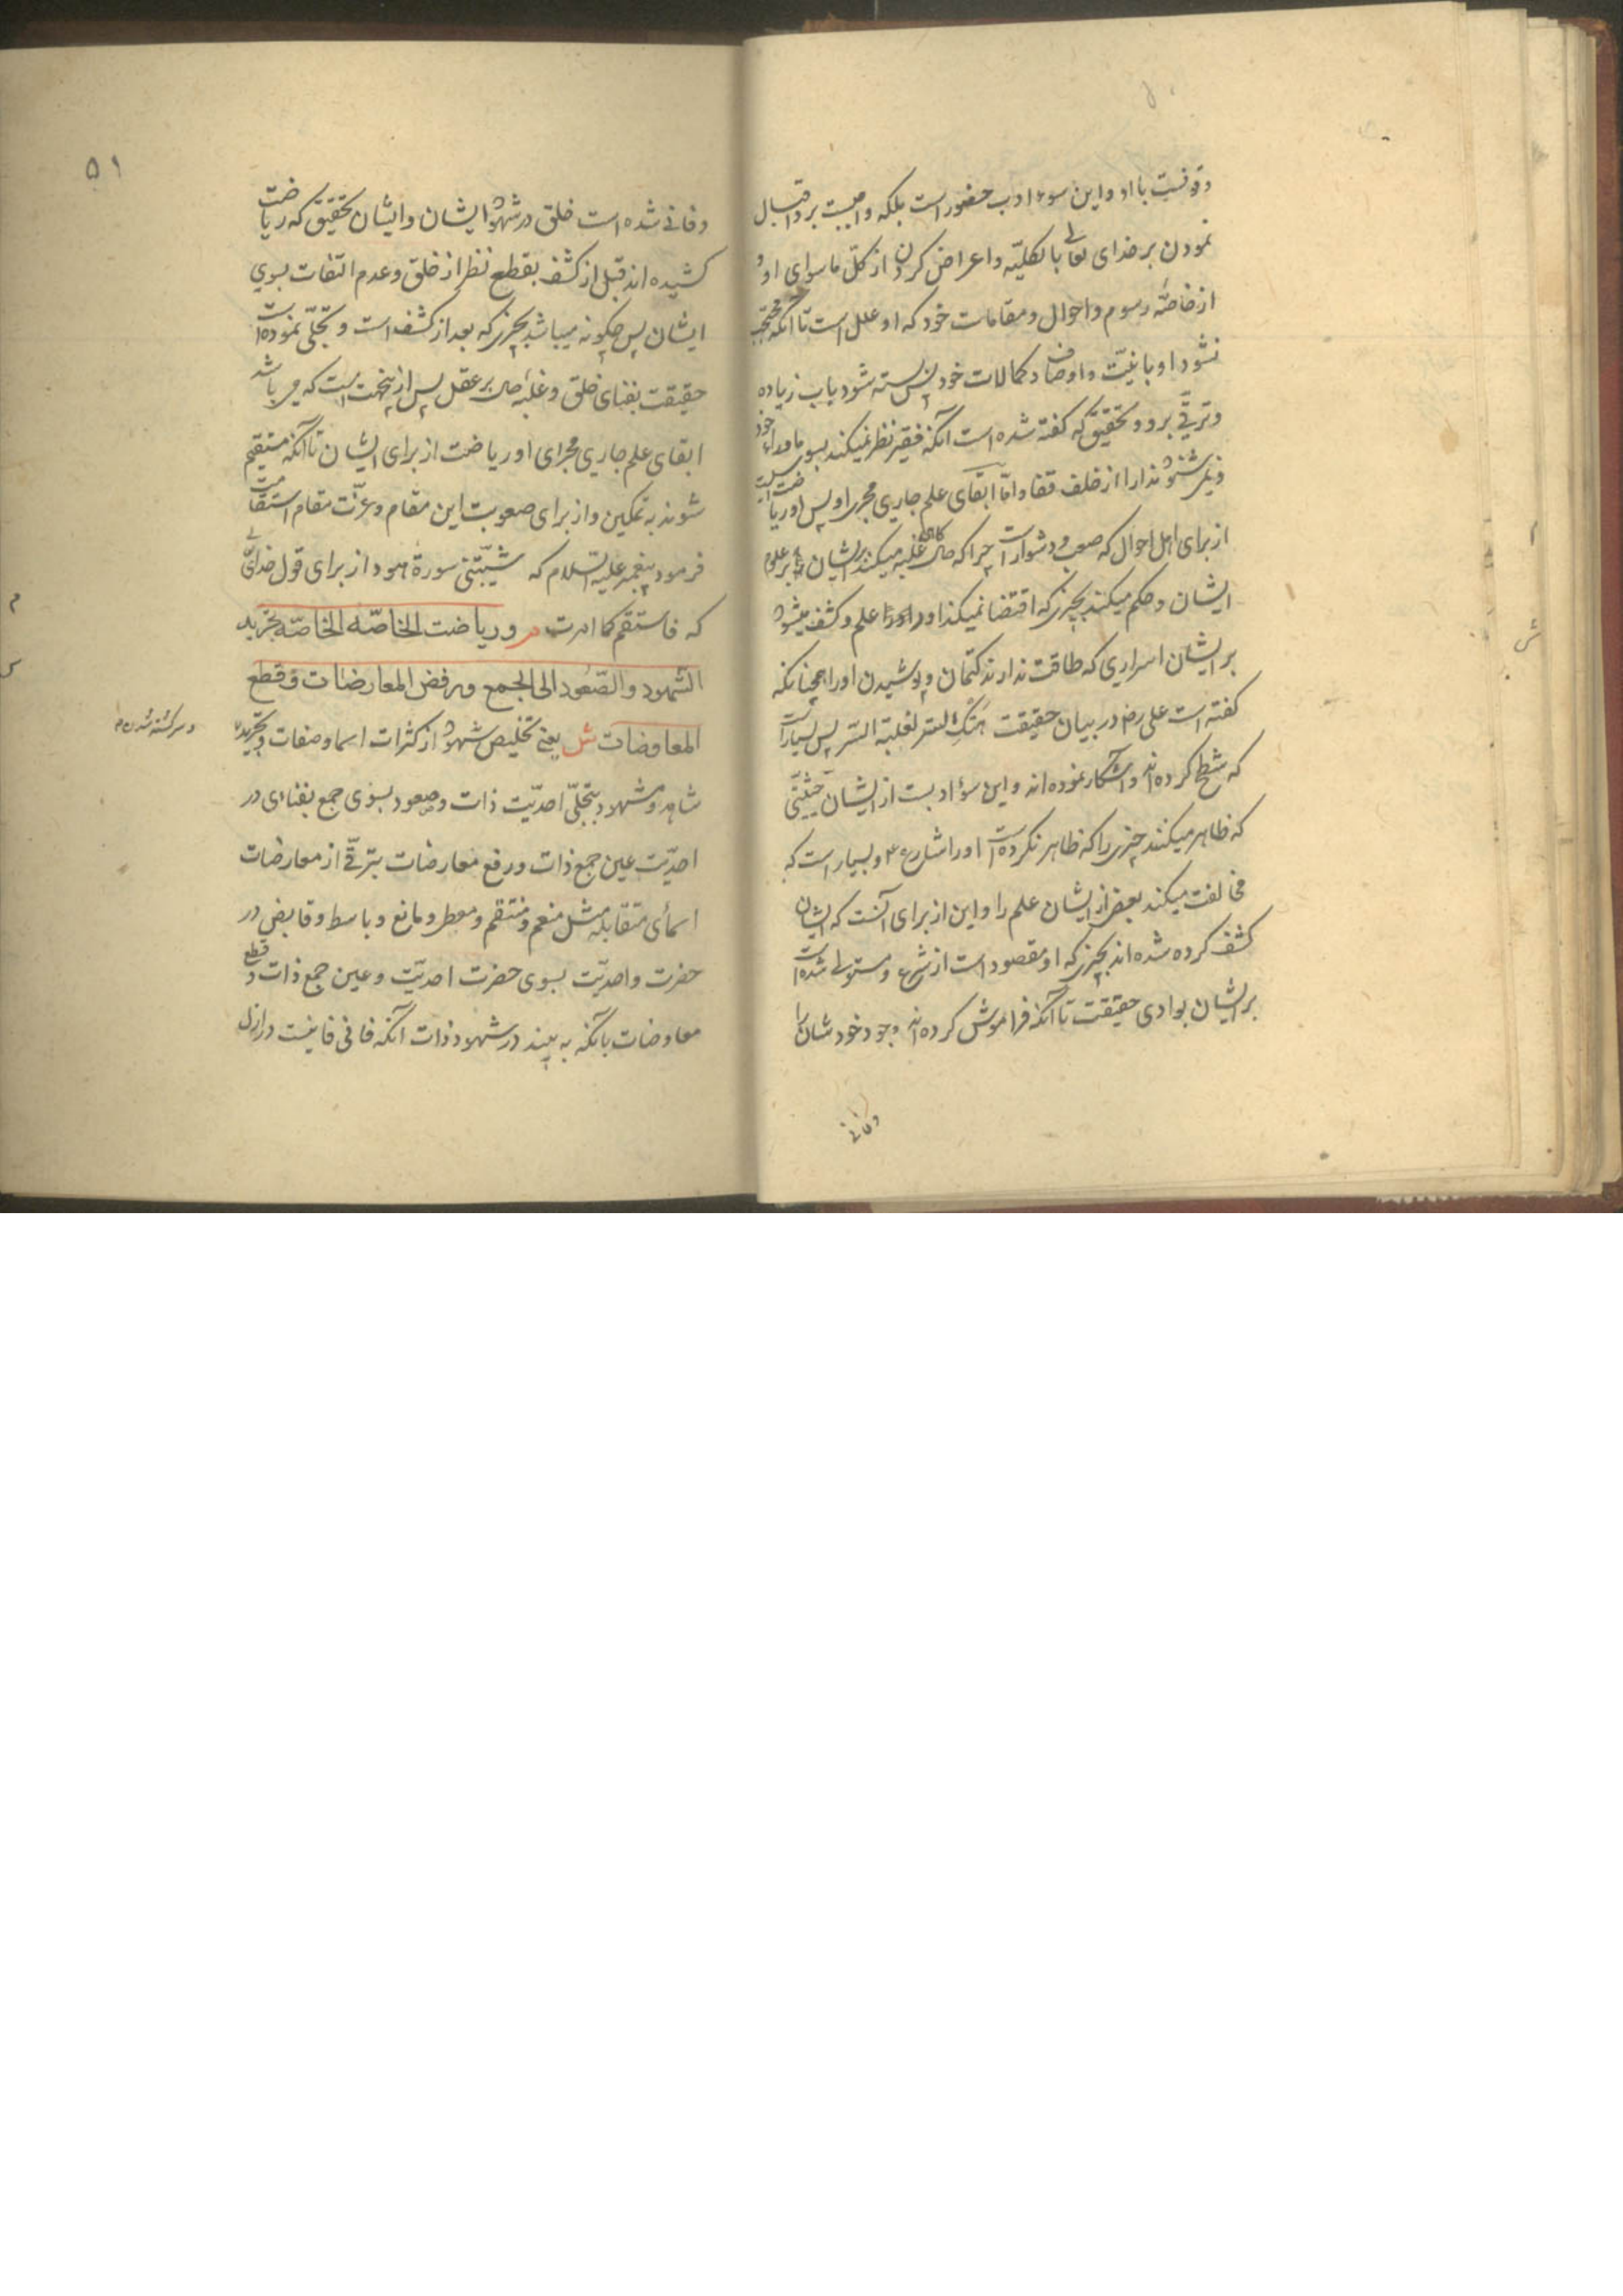 وقوفست با او و این سوء ادب حضور است بلکه واجبست برو اقبال
نمودن بر خدای تعالی بالکلیّه و اعراض کردن از کلّ ماسوای او و
از خاصّه رسوم و احوال و مقامات خود که او علل است تا آنکه محتجب
نشود او بانیّت و اوصاف و کمالات خود پس بسته شود باب زیاده
و ترقّی برو و تحقیق که گفته شده است آنکه فقیر نظر نمیکند بسوی ماوراء خود
و نمی شنود ندا را از خلف قفا و امّا ابقای علم جاری مجری او پس او ریاضت است
از برای اهل احوال که صعب و دشوار است چرا که حال گاهی غلبه میکند بر ایشان بر علوم
ایشان و حکم میکند بچیزی که اقتضا نمیکند او را علم و کشف میشود
بر ایشان اسراری که طاقت ندارند کتمان و پوشیدن او را همچنانکه
گفته است علی رض در بیان حقیقت هتک الستر لغلبة السّر پس بسیار است
که شطح کرده اند و آشکار نموده اند و این سؤ ادبست از ایشان
که ظاهر میکنند چیزی را که ظاهر نکرده است او را شارع ع و بسیار است که
مخالفت میکند بعضی از ایشان علم را و این از برای آنست که ایشان
کشف کرده شده اند بچیزی که او مقصود است از شرع و مستولی شده است
بر ایشان بوادی حقیقت تا آنکه فراموش کرده اند وجود خودشان را
وفانی
۵۱
وفانی شده است خلق در شهود ایشان و ایشان تحقیق که ریاضت
کشیده اند قبل از کشف بقطع نظر از خلق و عدم التفات بسوی
ایشان پس چگونه میباشد بچیزی که بعد از کشف است و تجلّی نموده است
حقیقت بفنای خلق و غلبۀ حال بر عقل پس از ینجهت است که می باشد
ابقای علم جاری مجرای او ریاضت از برای ایشان تا آنکه مستقیم
شوند به تمکین و از برای صعوبت این مقام و عزّت مقام استقامت
فرمود پیغمبر علیه السّلام که شیّبتنی سورة هود از برای قول خدای تعالی
که فاستقم کما امرت م و ریاضت الخاصّه الخاصّه تجرید
الشهود والصّعود الی الجمع ورفض المعارضات وقطع
المعاوضات ش یعنی تخلیص شهود از کثرات اسما و صفات و تجرید
و سرگشته شدن
شاهد و مشهود بتجلّی احدیّت ذات و صعود بسوی جمع بفنای در
احدیّت عین جمع ذات و رفع معارضات بترقّی از معارضات
اسمای متقابله مثل منعم و منتقم و معطی و مانع و باسط و قابض در
حضرت واحدیّت بسوی حضرت احدیّت و عین جمع ذات و قطع
معاوضات بانکه به بیند در شهود ذات آنکه فانی فانیست در ازل